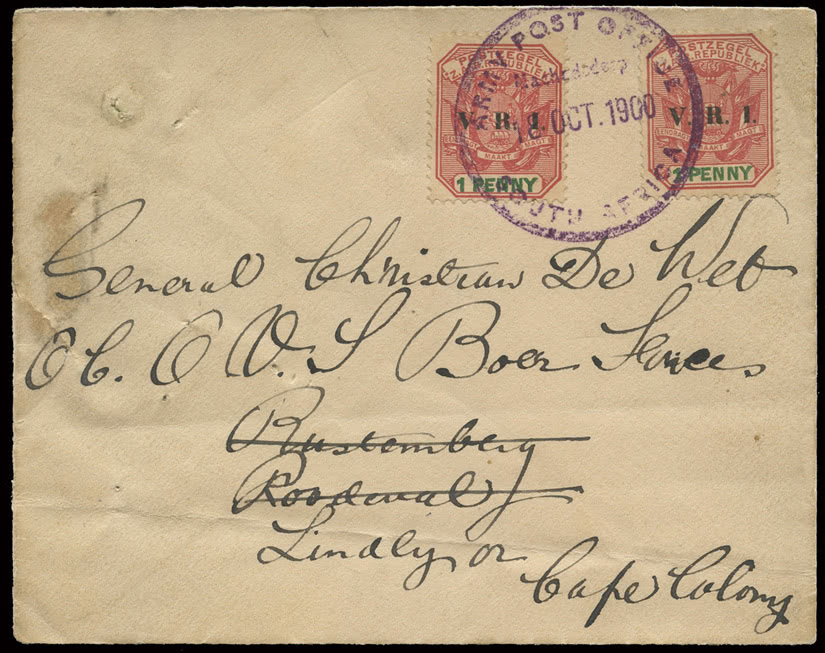 ARMY POST OFFICE
18 OCT. 1900
SOUTH AFRICA
POSTZEGEL
Z. AFR. REPUBLIEK
V. R. I.
EENDRAGT MAAKT MAGT
1 PENNY
POSTZEGEL
Z. AFR. REPUBLIEK
V. R. I.
EENDRAGT MAAKT MAGT
1 PENNY
General Christian De Wet
OC. O V. S Boer Forces
Rustemberg
Roodeval
Lindly or
Cape Colony